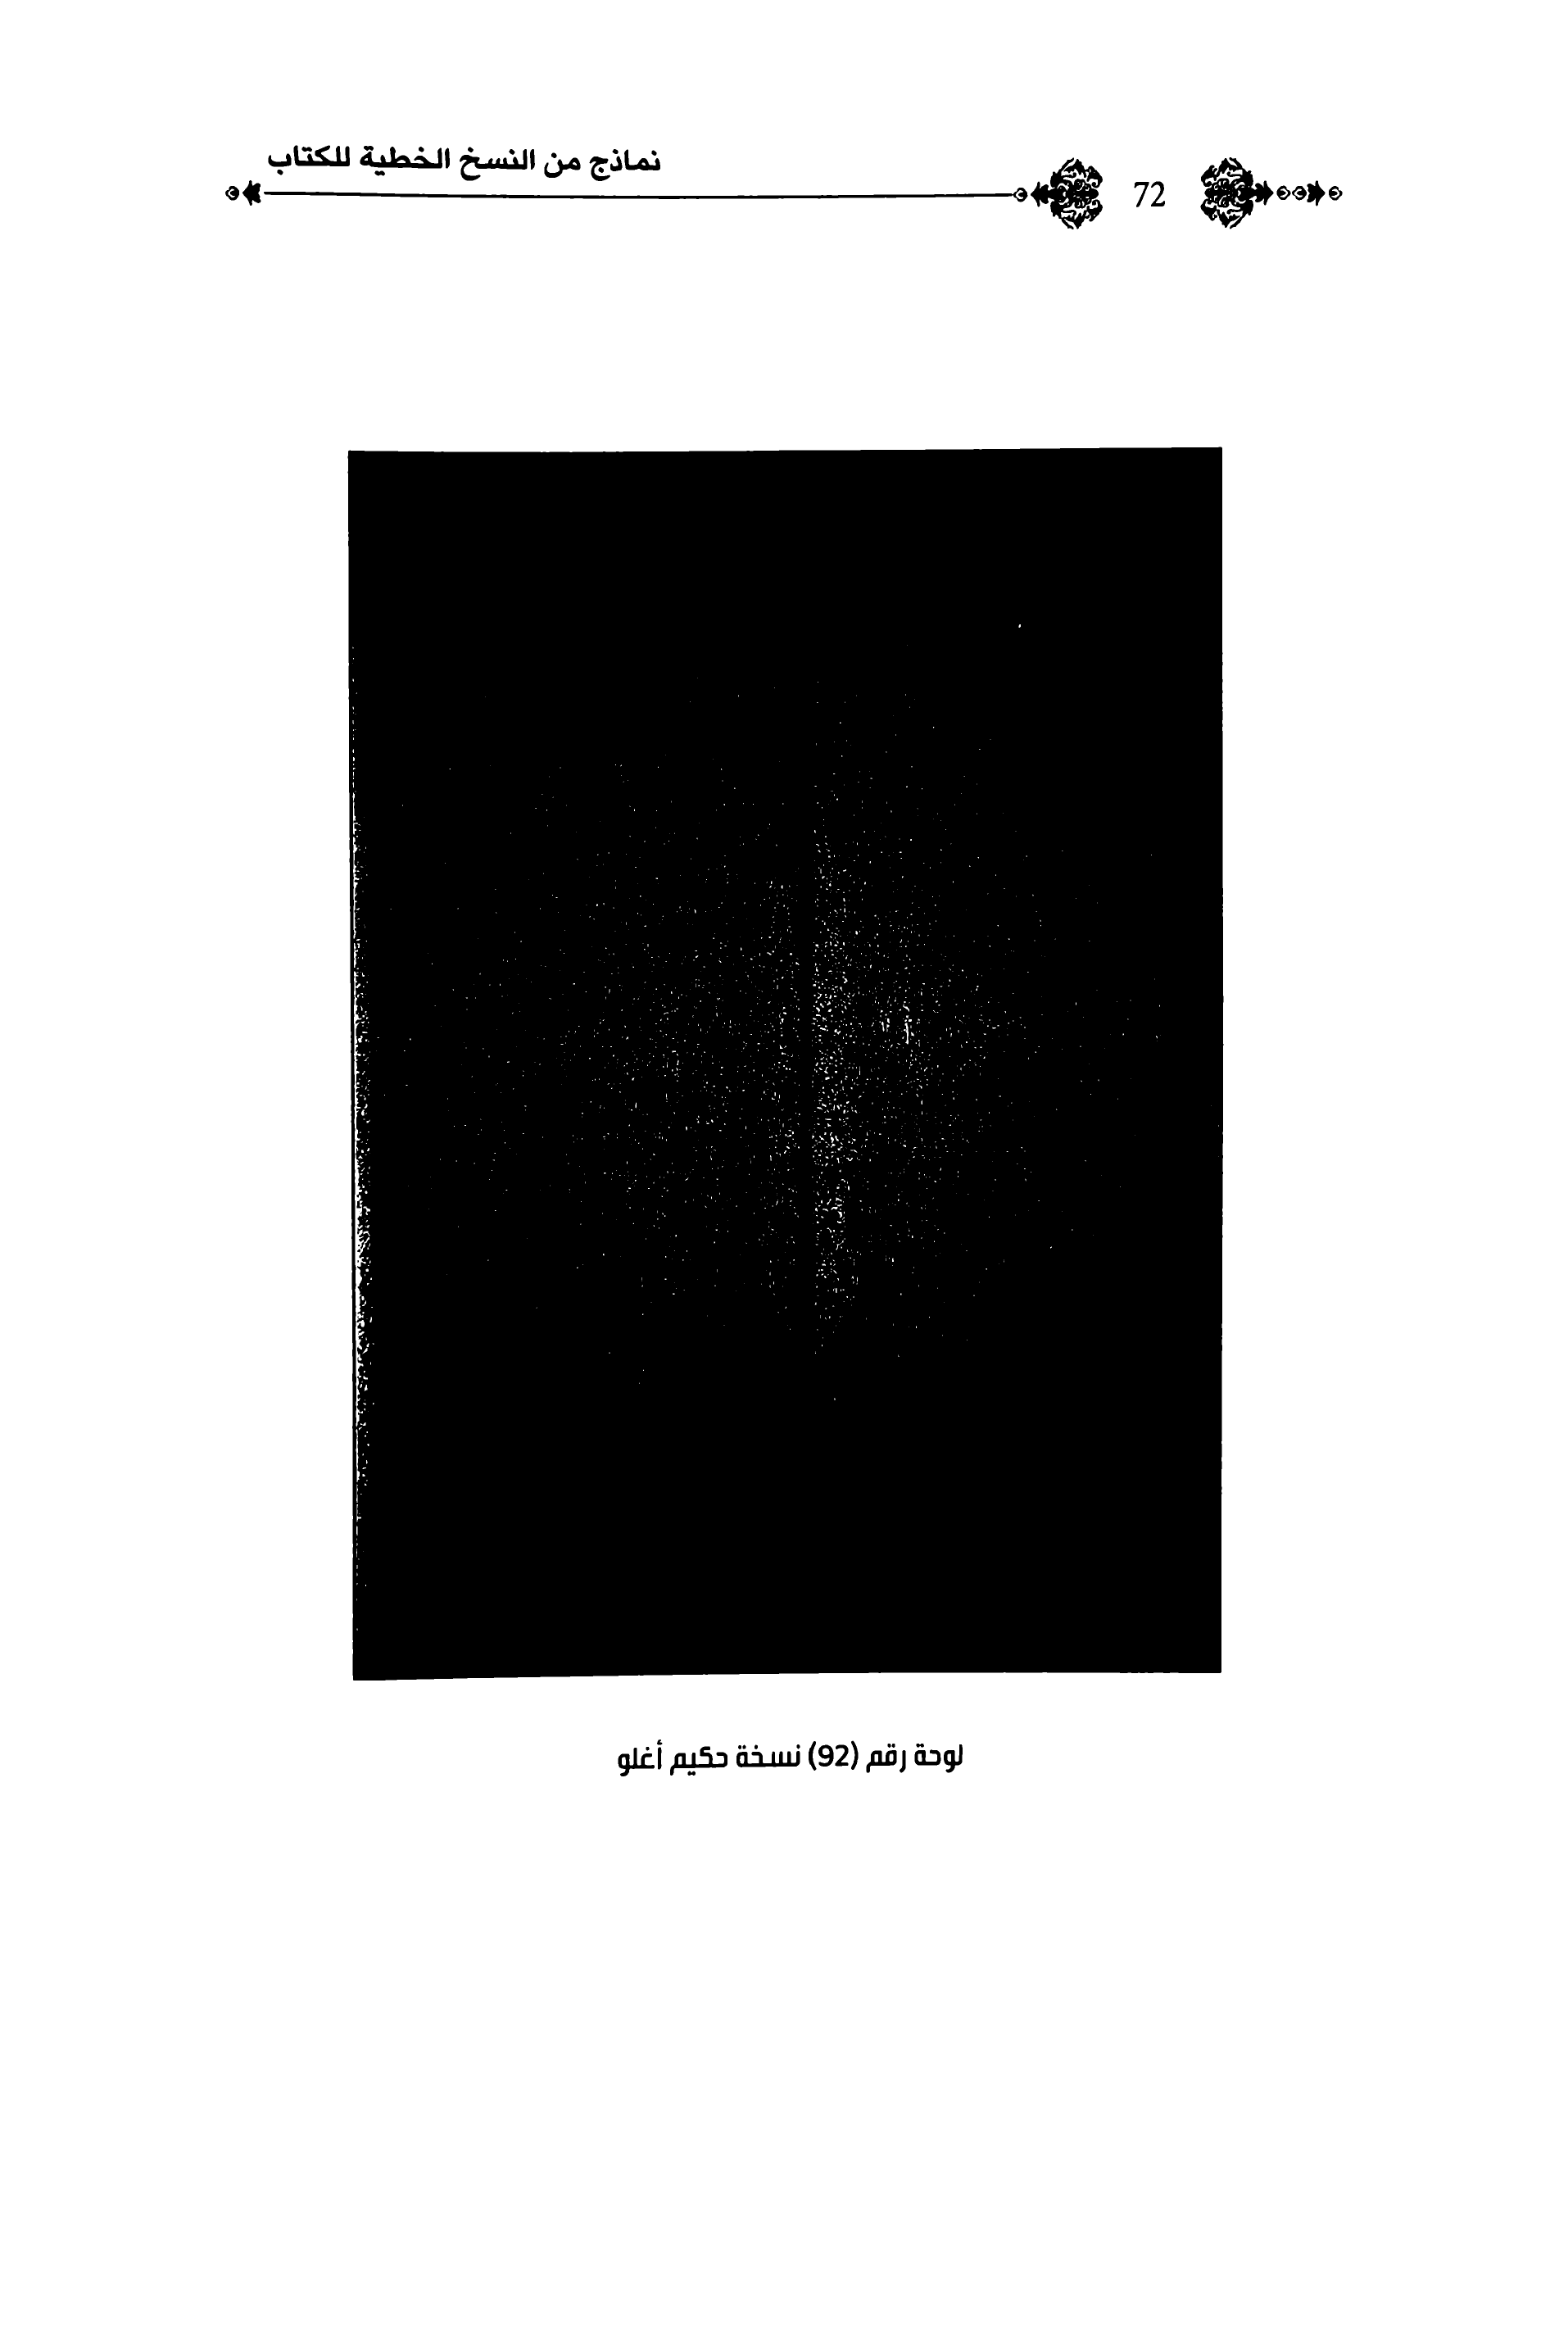 72
نماذج من النسخ الخطية للكتاب
لوحة رقم (92) نسخة حكيم أغلو